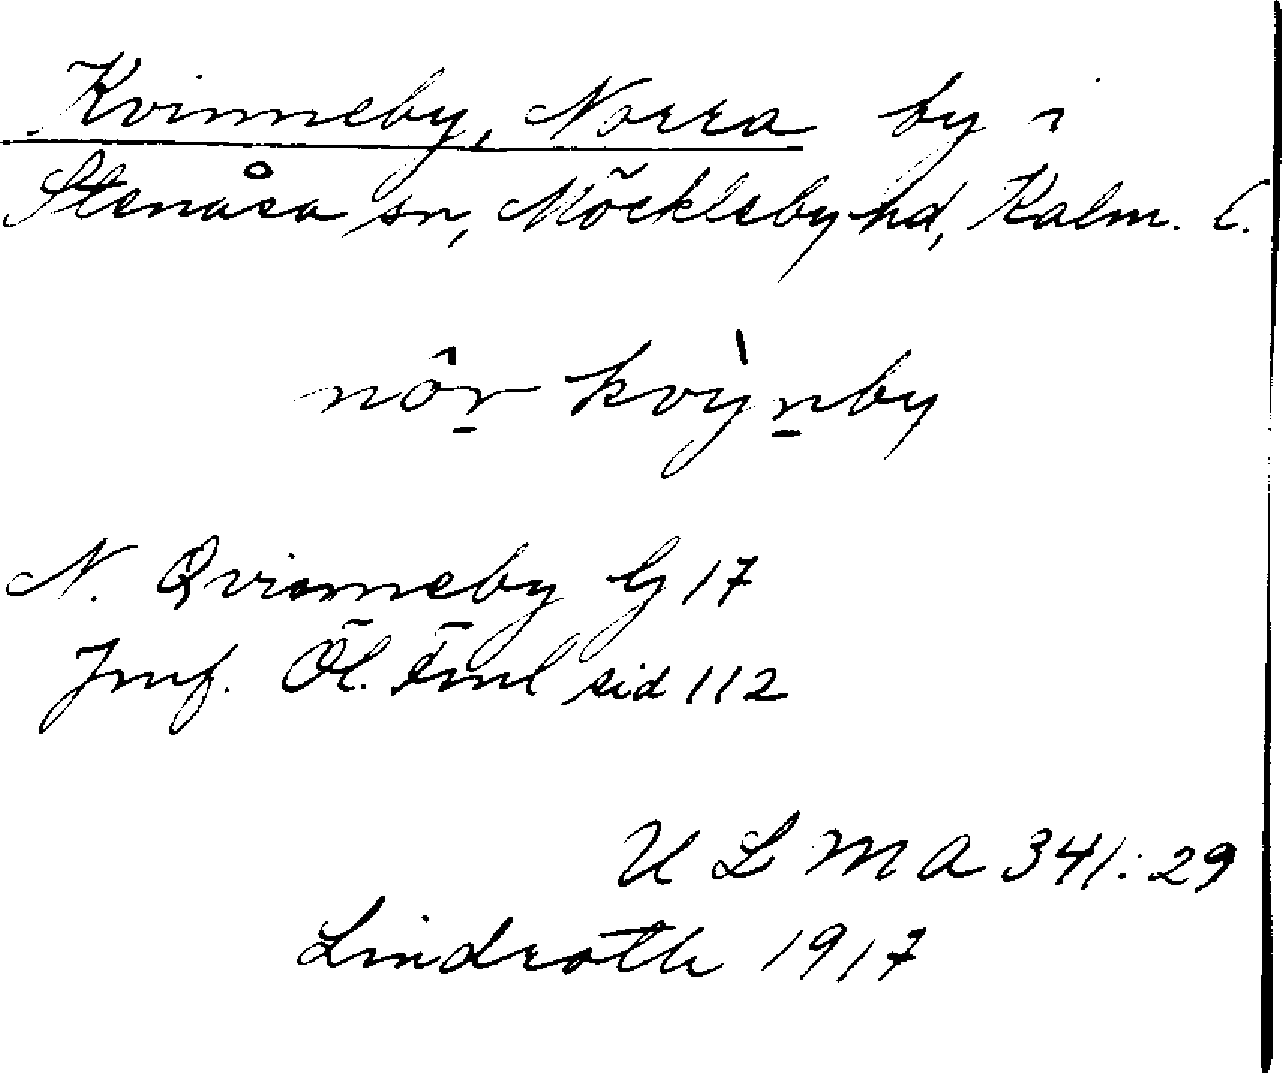 Kvinneby, Norra by i
Stenåsa sn, Möckleby hd, Kalm. l.
nôr kvỳnby
N. Qvinneby G 17
Jmf. Öl. Fml sid 112
U L M A 341:29
Lindroth 1917